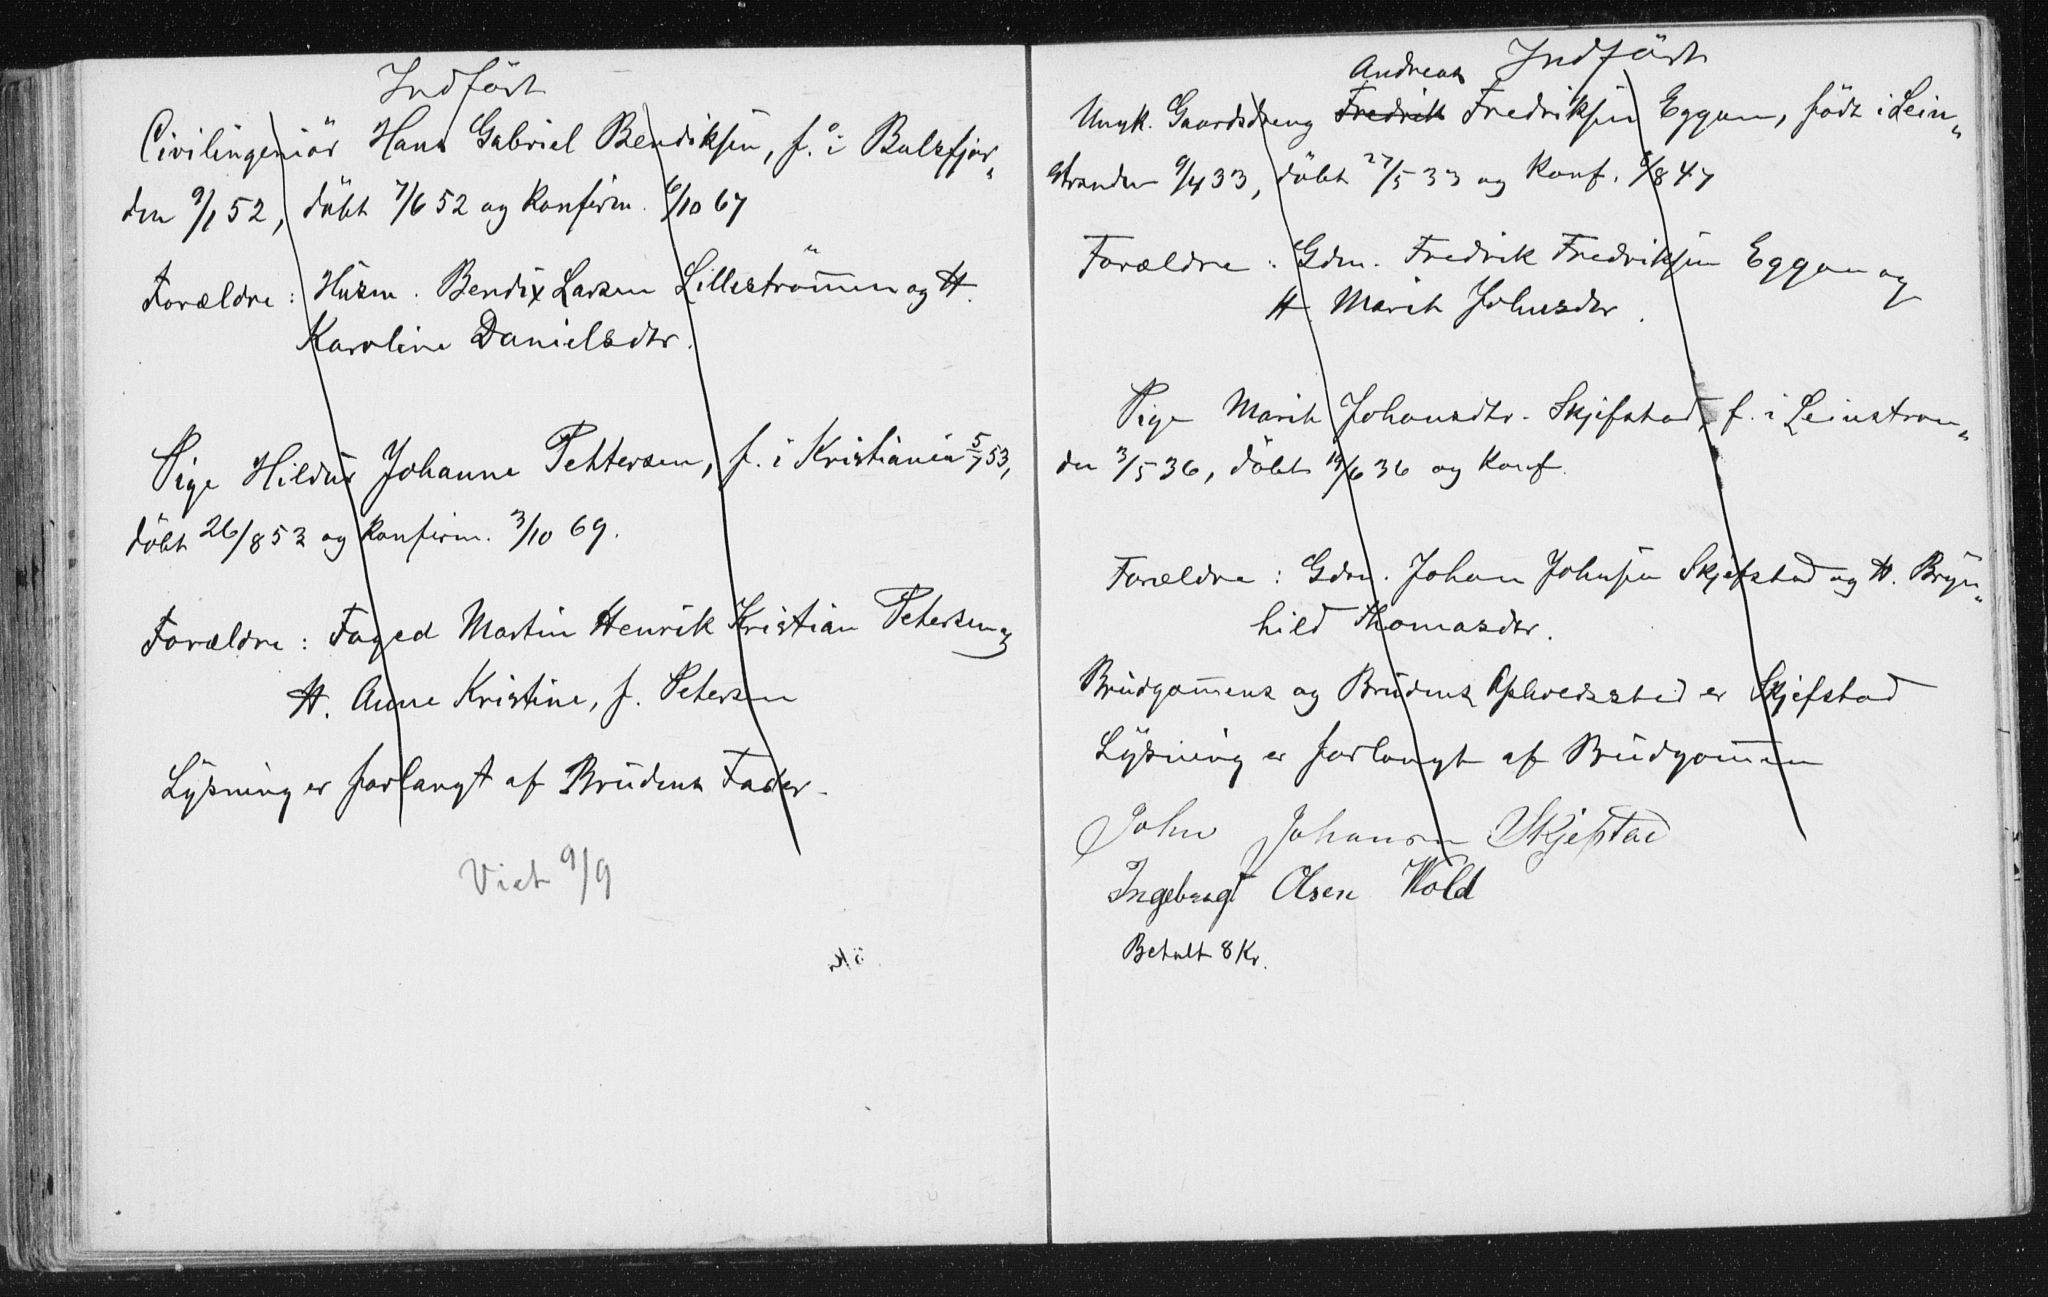 Indført
Civilingeniör Hans Gabriel Bendiksen, f. i Balsfjor„
den 9/1 52, döbt 7/6 52 og konfirm. 6/10 67
Forældre: Husm. Bendix Larsen Lilleström̅en og H.
Karoline Danielsdtr.
Pige Hildur Johanne Pettersen, f. i Kristiania 5/7 53,
döbt 26/8 53 og konfirm. 3/10 69.
Forældre: Foged Martin Henrik Kristian Petersen og
H. Anne Kristine, f. Petersen
Lysning er forlangt af Brudens Fader.
Viet 9/9
Indført
Andreas
Ungk. Gaardsdreng Fredrik Fredriksen Eggan, født i Lein„
stranden 9/4 33, döbt 27/5 33 og konf. 8/8 47
Forældre: Gdm. Fredrik Fredriksen Eggan og
H. Marit Johnsdtr.
Pige Marit Johansdtr. Skjefstad, f. i Leinstran„
den 3/5 36, döbt /6 36 og konf.
Forældre: Gdm. Johan Johnsen Skjefstad og H. Bryn„
hild Thomasdtr.
Brudgom̅ens og Brudens Opholdssted er Skjefstad
Lysning er forlangt af Brudgom̅en
John Johansen Skjefstad
Ingebrigt Olsen Wold
Betalt 8 Kr.